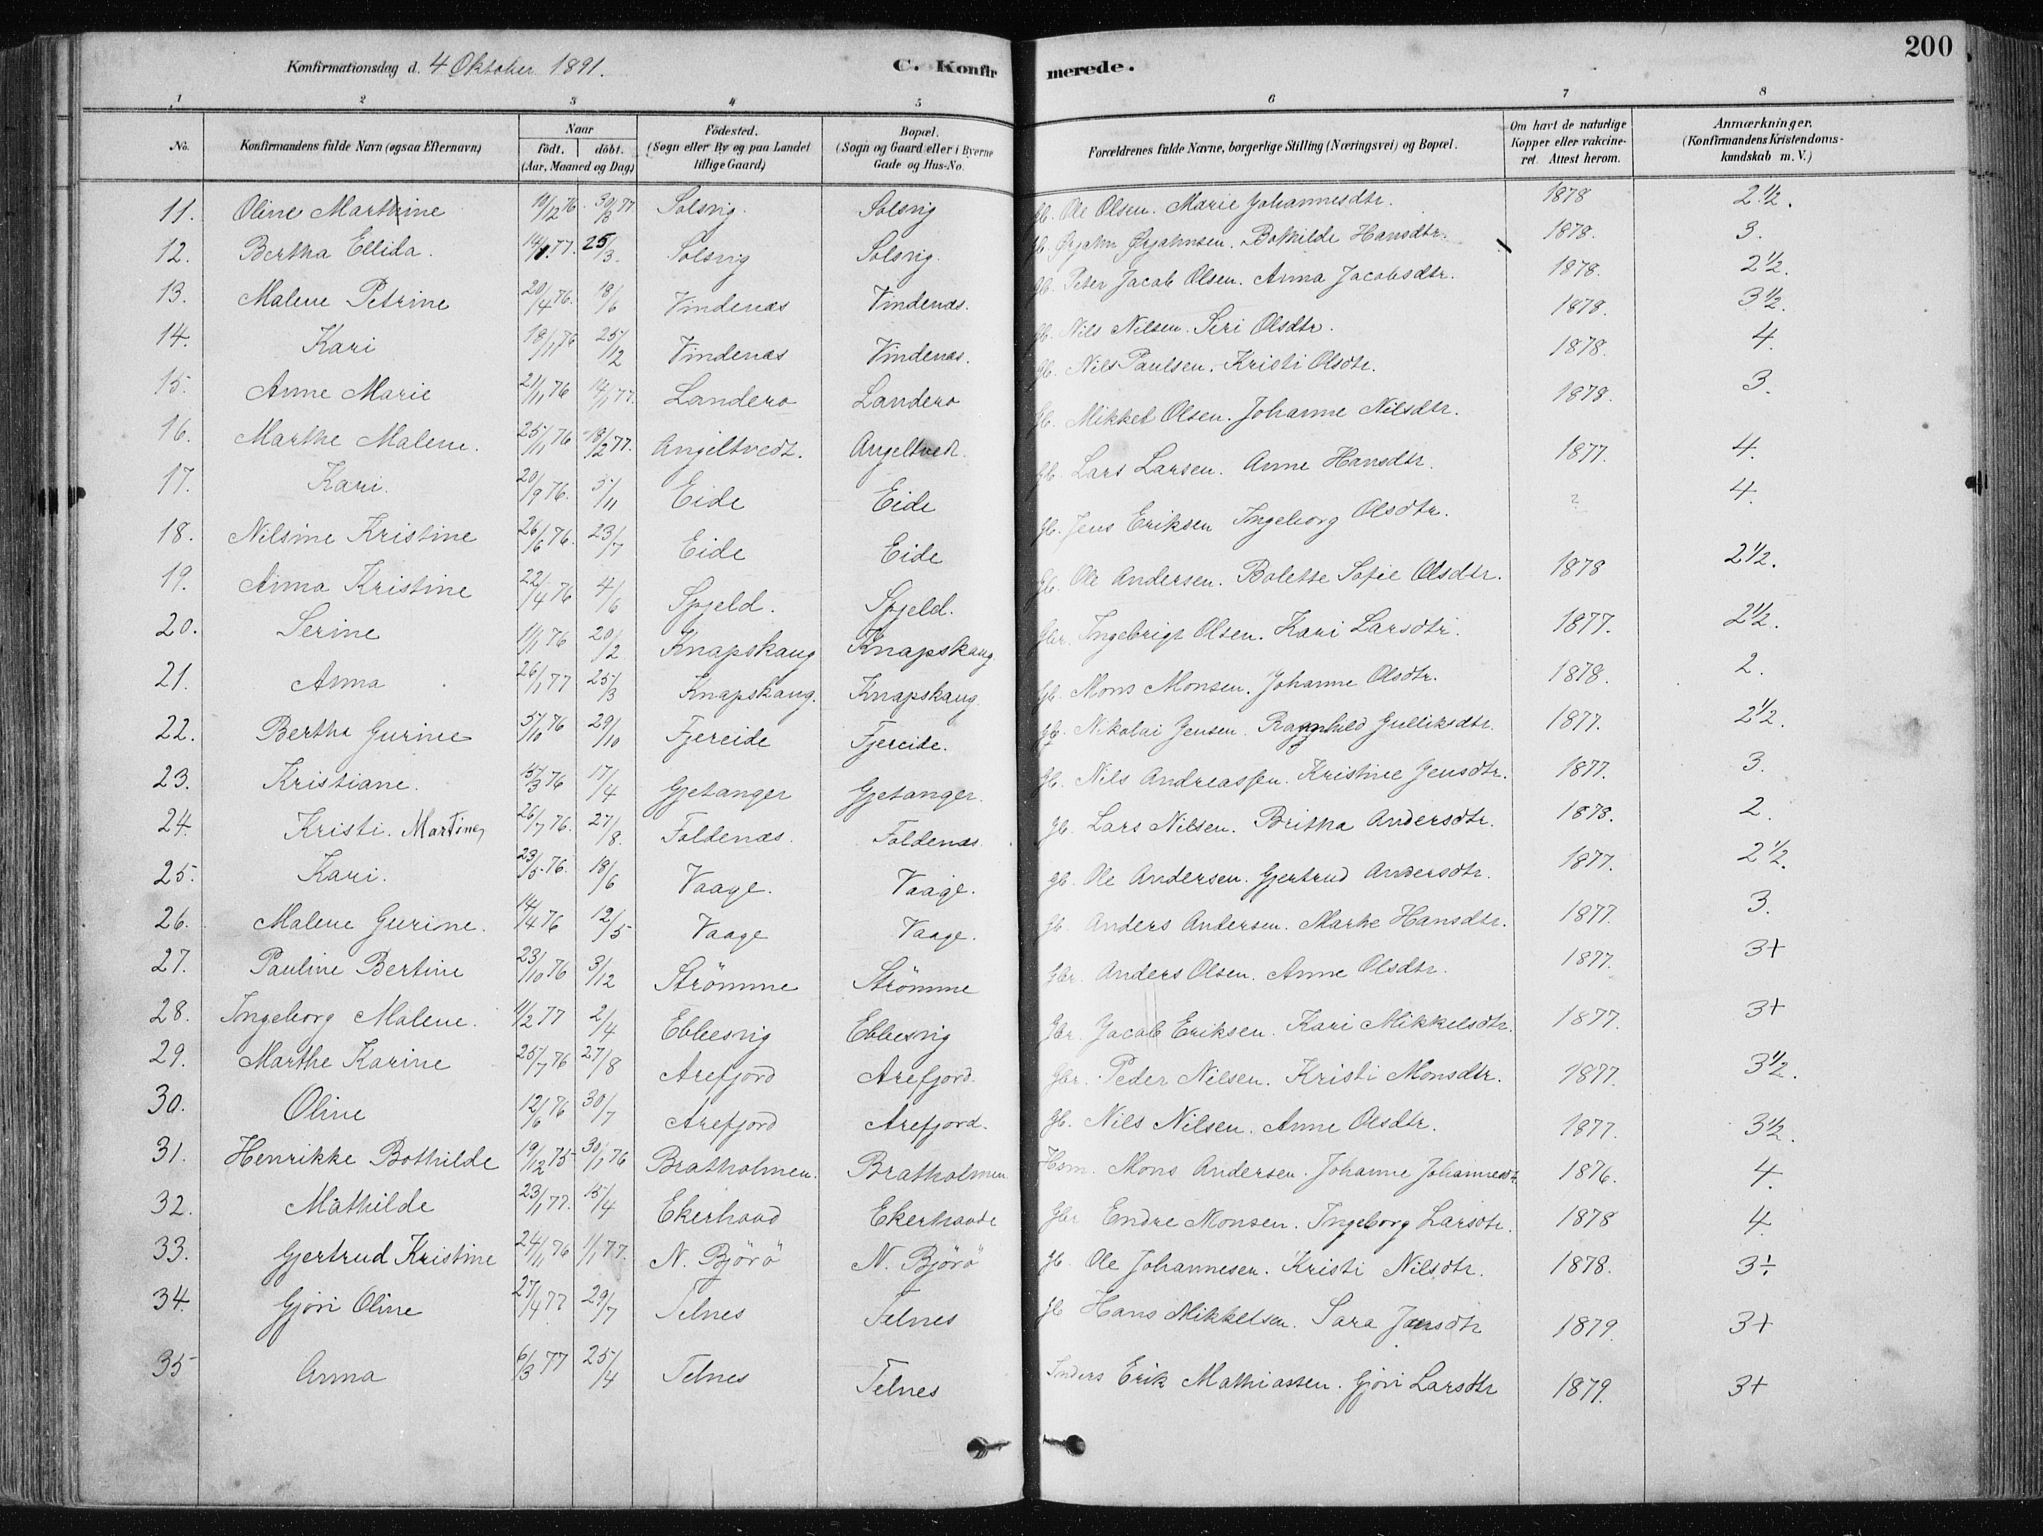 200
Konfirmationsdag d. 4 Oktober 1891.
C. Konfirmerede.
1 2 3 4 5 6 7 8
No. Konfirmandens fulde Navn (ogsaa Efternavn) Naar födt. döbt. (Aar, Maaned og Dag) Födested. (Sogn eller By og paa Landet tillige Gaard) Bopæl. (Sogn og Gaard eller i Byerne Gade og Hus-No. Forældrenes fulde Navne, borgerlige Stilling (Næringsvei) og Bopæl. Om havt de naturlige Kopper eller vakcineret. Attest herom. Anmærkninger. (Konfirmandens Kristendomskundskab m. V.)
11. Oline Marthine 10/12 76. 30/3 77 Solsvig. Solsvig Gb. Ole Olsen. Marie Johannesdtr. 1878 2 1/2.
12. Bertha Ellida. 14/1 77. 25/3. Solsvig Solsvig. Gb. Ørjahn Ørjahnsen. Bothilde Hansdtr. 1878. 3.
13. Malene Petrine 20/4 76. 18/6 Vindenæs Vindenæs. Gb. Peter Jacob Olsen. Anna Jacobsdtr. 1878. 2 1/2.
14. Kari 18/11 76 25/12 Vindenæs Vindenæs. Gb. Nils Nilsen. Seri Olsdtr. 1878. 3 1/2.
15. Anne Marie 21/11 76 14/1 77. Landero Landero Gb. Nils Paulsen. Kristi Olsdtr. 1878. 4.
16. Marthe Malene. 25/11 76 18/2 77. Angeltvedt. Angeltvedt. Gb. Mikkel Olsen. Johanne Nilsdtr. 1878. 3.
17. Kari. 20/9 76. 5/11 Eide Eide Gb. Lars Larsen. Anne Hansdtr. 1877. 4.
18. Nilsine Kristine 26/6 76. 23/7 Eide Eide Gb. Jens Eriksen Ingeborg Olsdtr. ? 4.
19. Anna Kristine 22/4 76 4/6 Spjeld. Spjeld. Gb. Ole Andersen. Bolette Sofie Olsdtr. 1878 2 1/2.
20. Serine 1/1 76 20/2 Knapskaug Knapskaug. Gbr. Ingebrigt Olsen. Kari Larsdtr. 1877. 2 1/2.
21. Anna 26/1 77 25/3 Knapskaug. Knapskaug. Gb. Mons Monsen. Johanne Olsdtr. 1878. 2.
22. Berthe Gurine 5/10 76 29/10 Fjereide Fjereide. Gb. Nikolai Jensen. Ragnhild Gulliksdtr. 1877. 2 1/2.
23. Kristiane. 15/3 76 17/4 Gjetanger Gjetanger. Gb. Nils Andreassen. Kristine Jensdtr. 1877. 3.
24. Kristi. Martine, 26/7 76. 27/8. Foldenæs. Foldenæs. Gb. Lars Nilsen. Britha Andersdtr. 1878. 2.
25. Kari. 23/5 76. 18/6 Vaage. Vaage. Gb. Ole Andersen. Gjertrud Andersdtr. 1877. 2 1/2.
26. Malene Gurine. 14/4 76 12/5 Vaage Vaage. Gb. Anders Andersen. Marthe Hansdtr. 1877. 3.
27. Pauline Bertine 23/10 76 3/12 Strömme Strömme Gbr. Anders Olsen. Anne Olsdtr. 1877. 3+
28. Ingeborg Malene. 11/2 77 2/4 Ebbesvig Ebbesvig Gbr. Jacob Eriksen. Kari Mikkelsdtr. 1877. 3+
29. Marthe Karine 25/7 76 27/8 Arefjord Arefjord. Gbr. Peder Nilsen. Kristi Monsdtr. 1877. 3 1/2.
30. Oline 12/6 76 30/7 Arefjord Arefjord. Gb. Nils Nilsen. Anne Olsdtr. 1877. 3 1/2.
31. Henrikke Bothilde 19/12 75 30/1 76 Bratholmen. Bratholmen Hsm. Mons Andersen. Johanne Johannesdtr 1876. 4.
32. Mathilde 23/1 77. 15/4 Ekerhovd Ekerhovde Gbr Endre Monsen. Ingeborg Larsdtr. 1878 4.
33. Gjertrud Kristine 24/11 76 1/1 77. N. Björö N. Björö Gb. Ole Johannesen. Kristi Nilsdtr. 1878. 3÷.
34. Gjöri Oline 27/4 77 29/7 Telnes Telnes Gb Hans Mikkelsen. Sara Jensdtr 1879. 3+
35 Anna 6/3 77 25/4 Telnes Telnes Inders Erik Mathiassen. Gjöri Larsdtr 1879. 3+